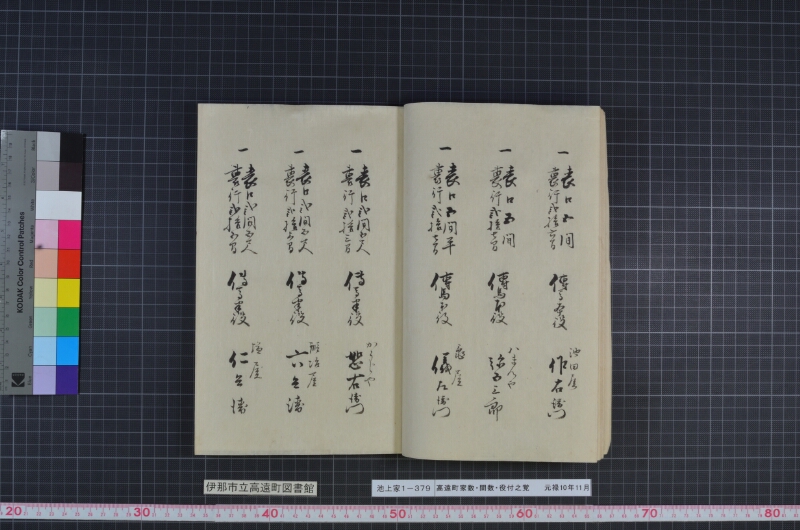 一 表口五間
裏行弐拾六間
傳馬壱役
池田屋
作右衛門
一 表口五間
裏行弐拾七間
傳馬壱役
八まんや
弥五三郎
一 表口五間半
裏行弐拾七間
傳馬壱役
屋
儀左衛門
一 表口弐間五尺
裏行弐拾三間
傳馬壱役
かうじや
惣右衛門
一 表口弐間五尺
裏行弐拾間
傳馬壱役
鍛冶屋
六兵衛
一 表口弐間五尺
裏行弐拾間
傳馬壱役
屋
仁兵衛
伊那市立高遠町図書館
池上家1－379 高遠町家数・間数・役付之覚 元禄10年11月
KODAK Color Control Patches
20 30 40 50 60 70 80